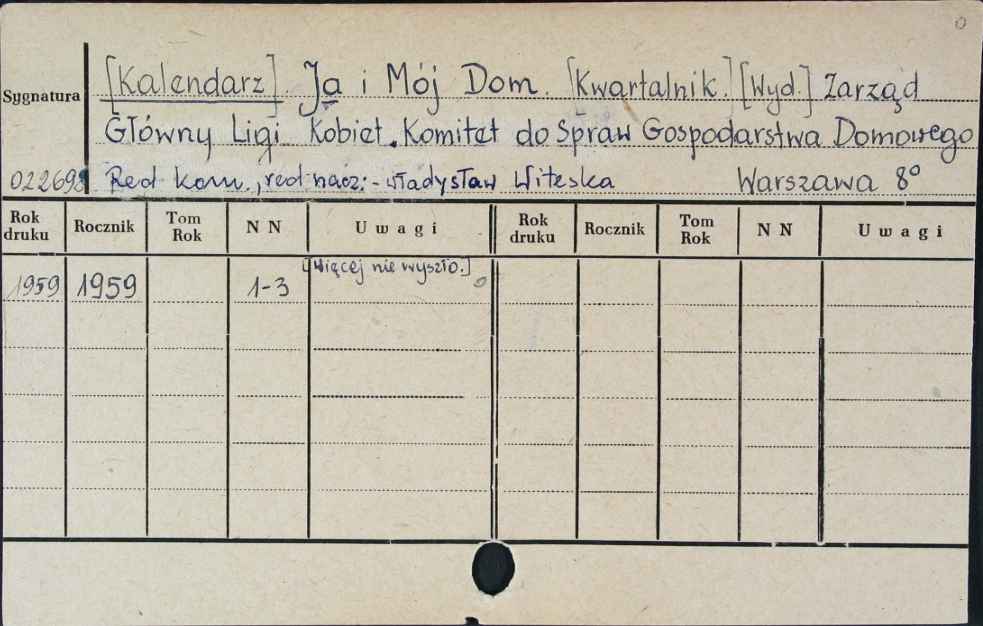 0
[Kalendarz]. Ja i Mój Dom. [Kwartalnik.] [Wyd.] Zarząd
Sygnatura
Główny Ligi Kobiet. Komitet do Spraw Gospodarstwa Domowego
022698 Red. kom., red. nacz.: - Władysław Witeska Warszawa 8°
Rok druku Rocznik Tom Rok N N Uwagi Rok druku Rocznik Tom Rok N N Uwagi
[Więcej nie wyszło.]
1959 1959 1-3